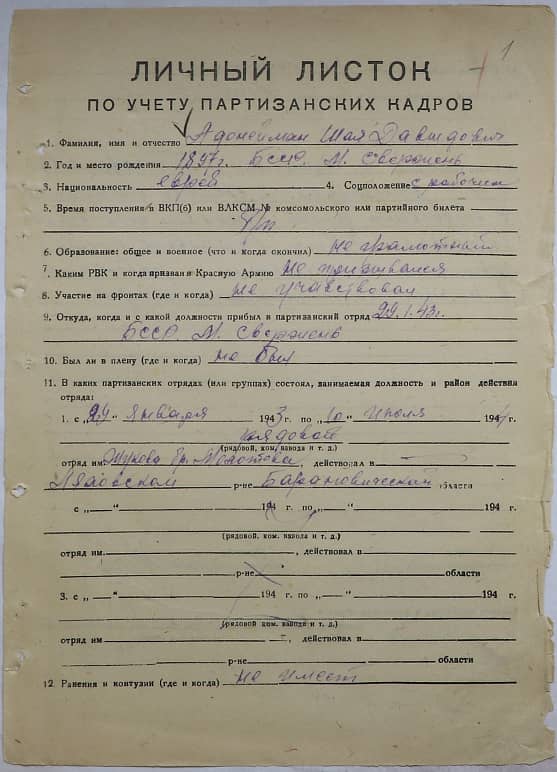 1
ЛИЧНЫЙ ЛИСТОК
ПО УЧЕТУ ПАРТИЗАНСКИХ КАДРОВ
1. Фамилия, имя и отчество Адонейман Шая Давидович
2. Год и место рождения 1897г. БССР М. Свержень
3. Национальность еврей 4. Соцположение с рабочих
5. Время поступления в ВКП(б) или ВЛКСМ № комсомольского или партийного билета
б/п
6. Образование: общее и военное (что и когда окончил) не грамотный
7. Каким РВК и когда призван в Красную Армию не призывался
8. Участие на фронтах (где и когда) не участвовал
9. Откуда, когда и с какой должности прибыл в партизанский отряд 29.1.43г.
БССР М. Свержень
10. Был ли в плену (где и когда) не был
11. В каких партизанских отрядах (или группах) состоял, занимаемая должность и район действия
отряда:
1. с „29“ января 1943 г. по „10“ июля 1944 г.
рядовой
(рядовой, ком. взвода и т. д.)
отряд им. Жукова бр. Молотова, действовал в
Ляховском р-не Барановической области
с „ “ 194 г. по „ “ 194 г.
(рядовой, ком. взвода и т. д.)
отряд им. , действовал в
р-не области
3. с „ “ 194 г. по „ “ 194 г.
(рядовой, ком. взвода и т. д.)
отряд им , действовал в
р-не области
12. Ранения и контузии (где и когда) не имеет